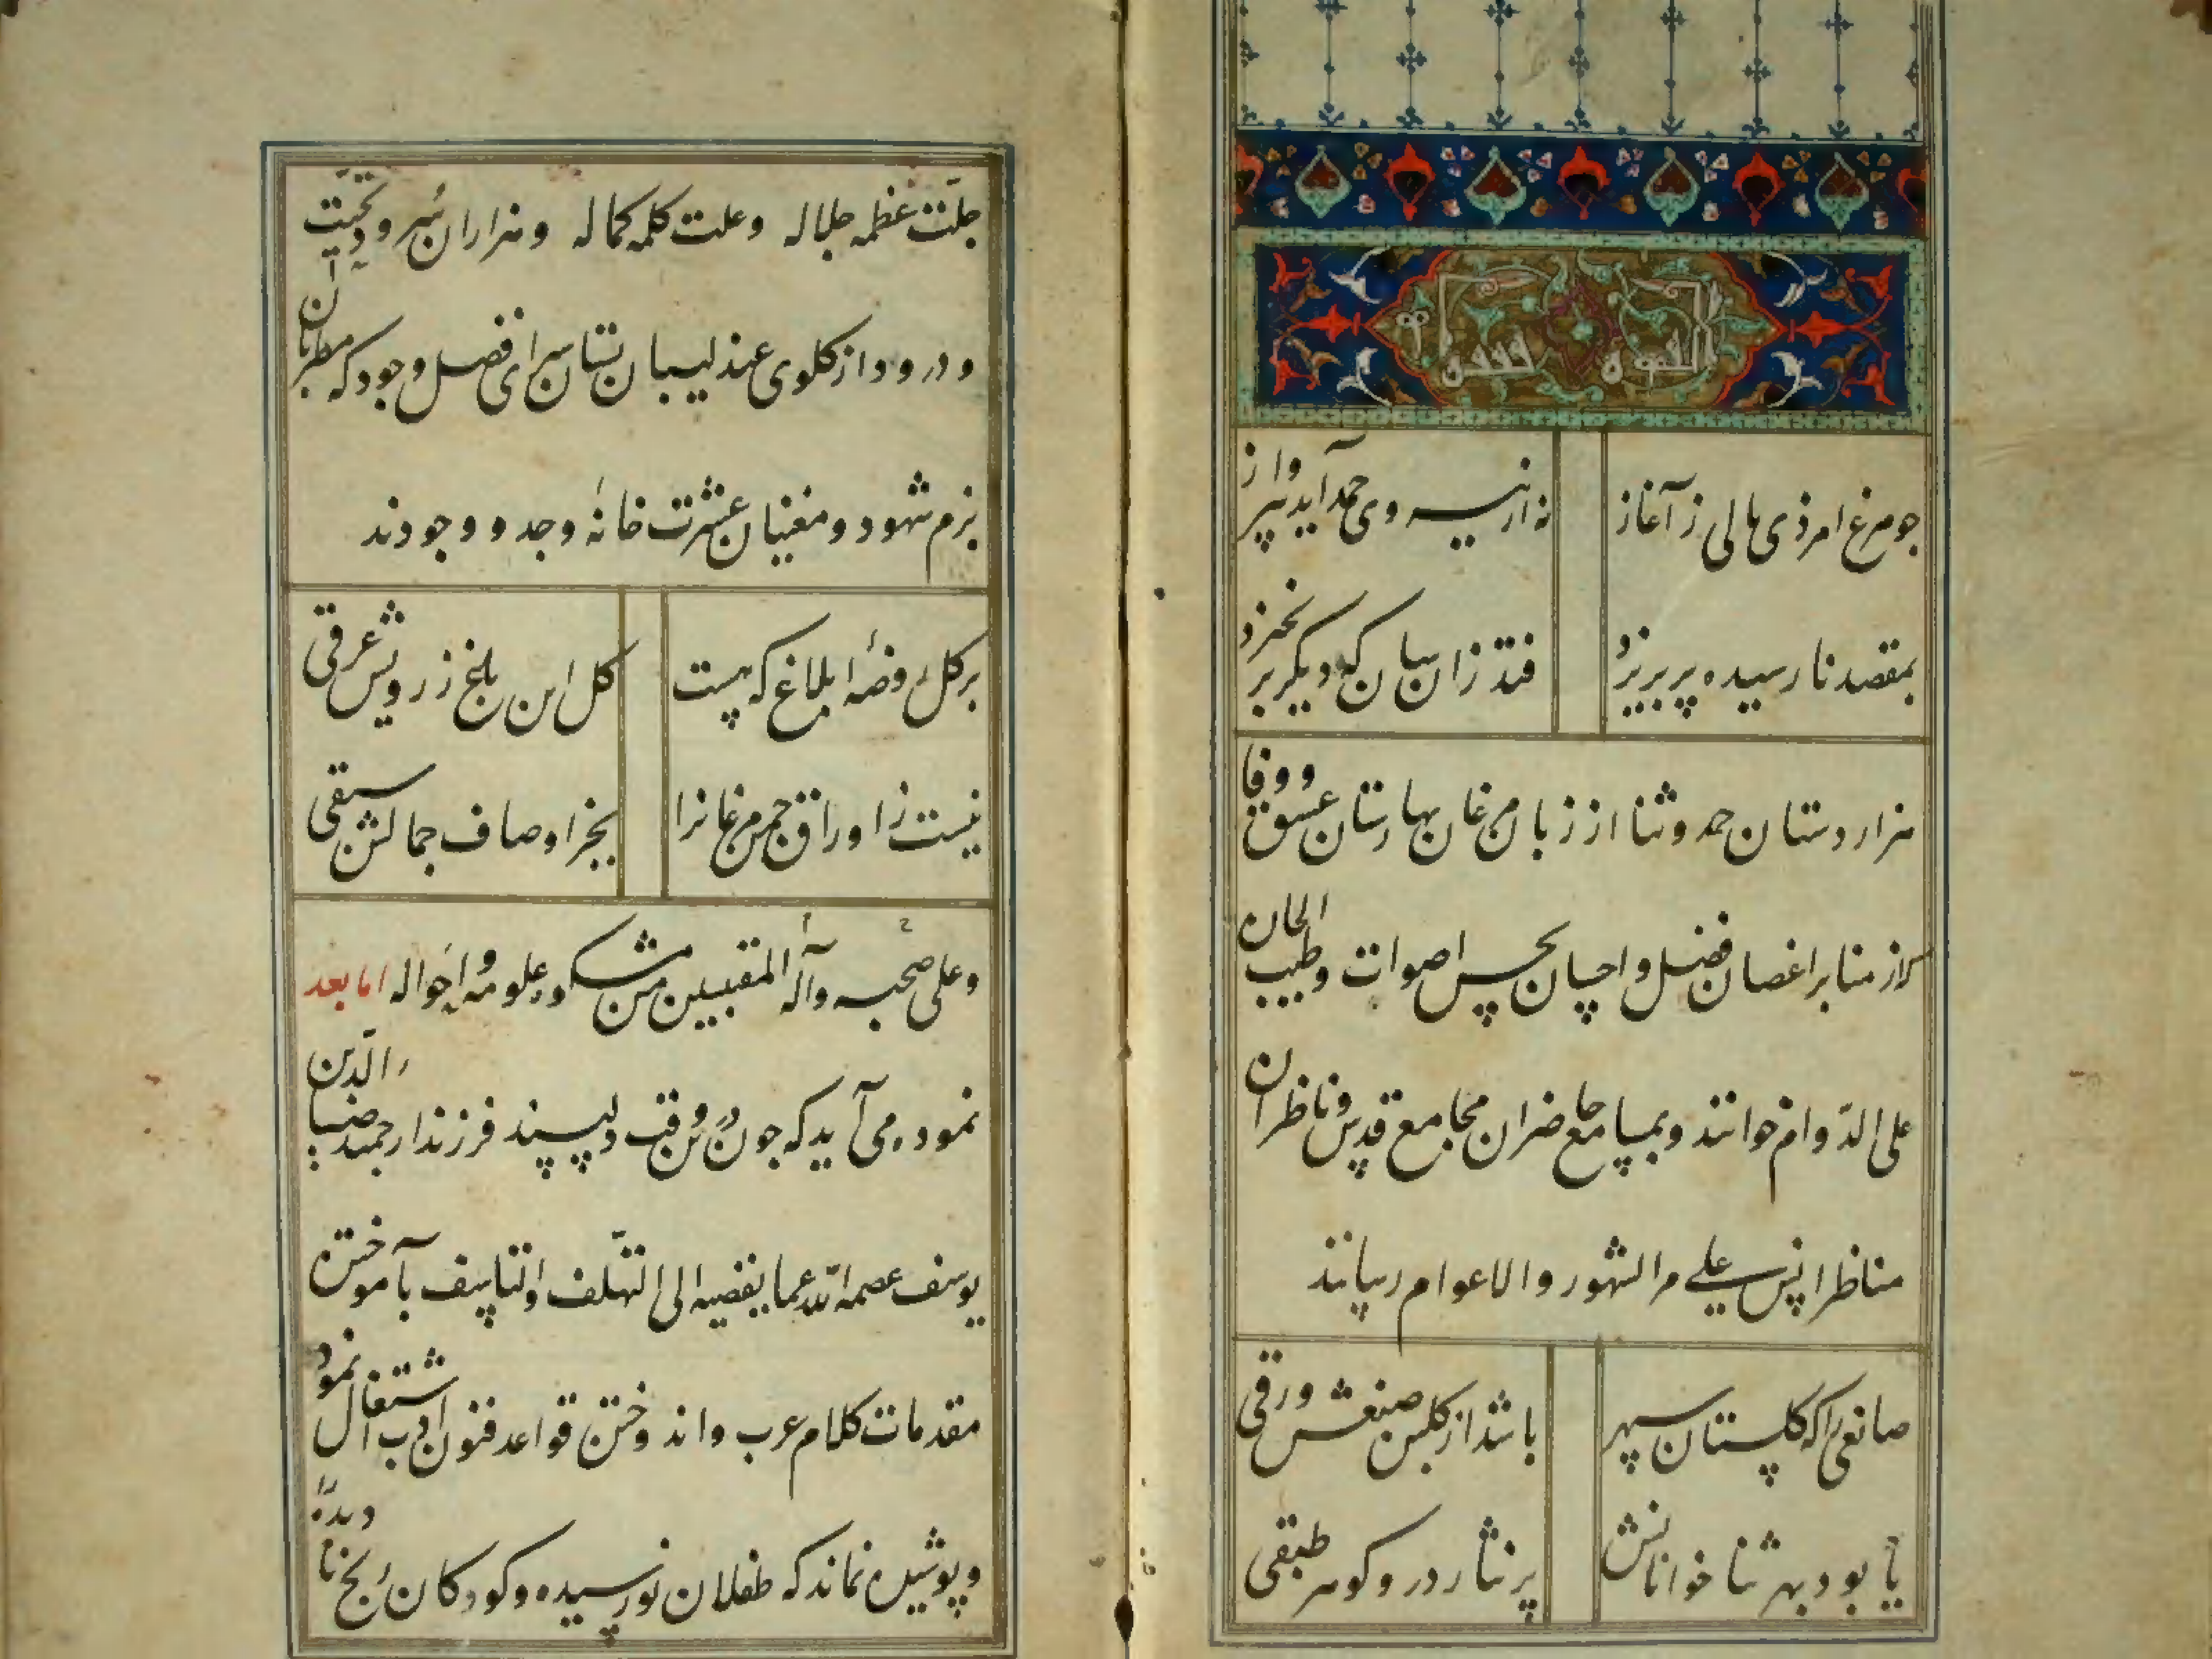 چو مرغ امر ذی بالی ز آغاز
نه از نیروی حمد آید بپرواز
بمقصد نارسیده پر بریزد
فتد زان سان که دیگر برنخیزد
هزار دستان حمد و ثنا از زبان مرغان بهارستان عشق و وفا
که از منابر اغصان فضل و احسان بحسن اصوات و طیب الحان
علی الدوام خوانند و بمسامع حاضران مجامع قدس و ناظران
مناظر انس علی مر الشهور والاعوام رسانند
صانعی را که گلستان سپهر
باشد از گلبن صنعش ورقی
یا بود بهر ثنا خوانانش
پر نثار در و گوهر طبقی
جلت عظمه جلاله وعلت کلمه کماله و هزاران سرود تحیت
و درود از گلوی عندلیبان بستان سرای فضل وجود که مطربان
بزم شهود و مغنیان عشرت خانهٔ وجد و وجودند
بر گل روضهٔ ابلاغ که هست
گل این بلغ ز رویش عرقی
نیست ز اوراق چمن مرغانرا
بجز اوصاف جمالش سبقی
وعلی صحبه وآله المقتبسین من مشکوه علومه واحواله اما بعد
نموده می آید که چون درین وقت دلپسند فرزند ارجمند ضیاءالدین
یوسف عصمه الله عما یفضیه الی التلهف والتاسف بآموختن
مقدمات کلام عرب و اندوختن قواعد فنون ادب اشتغال نمود
و پوشیده نماند که طفلان نورسیده و کودکان رنج نادیده